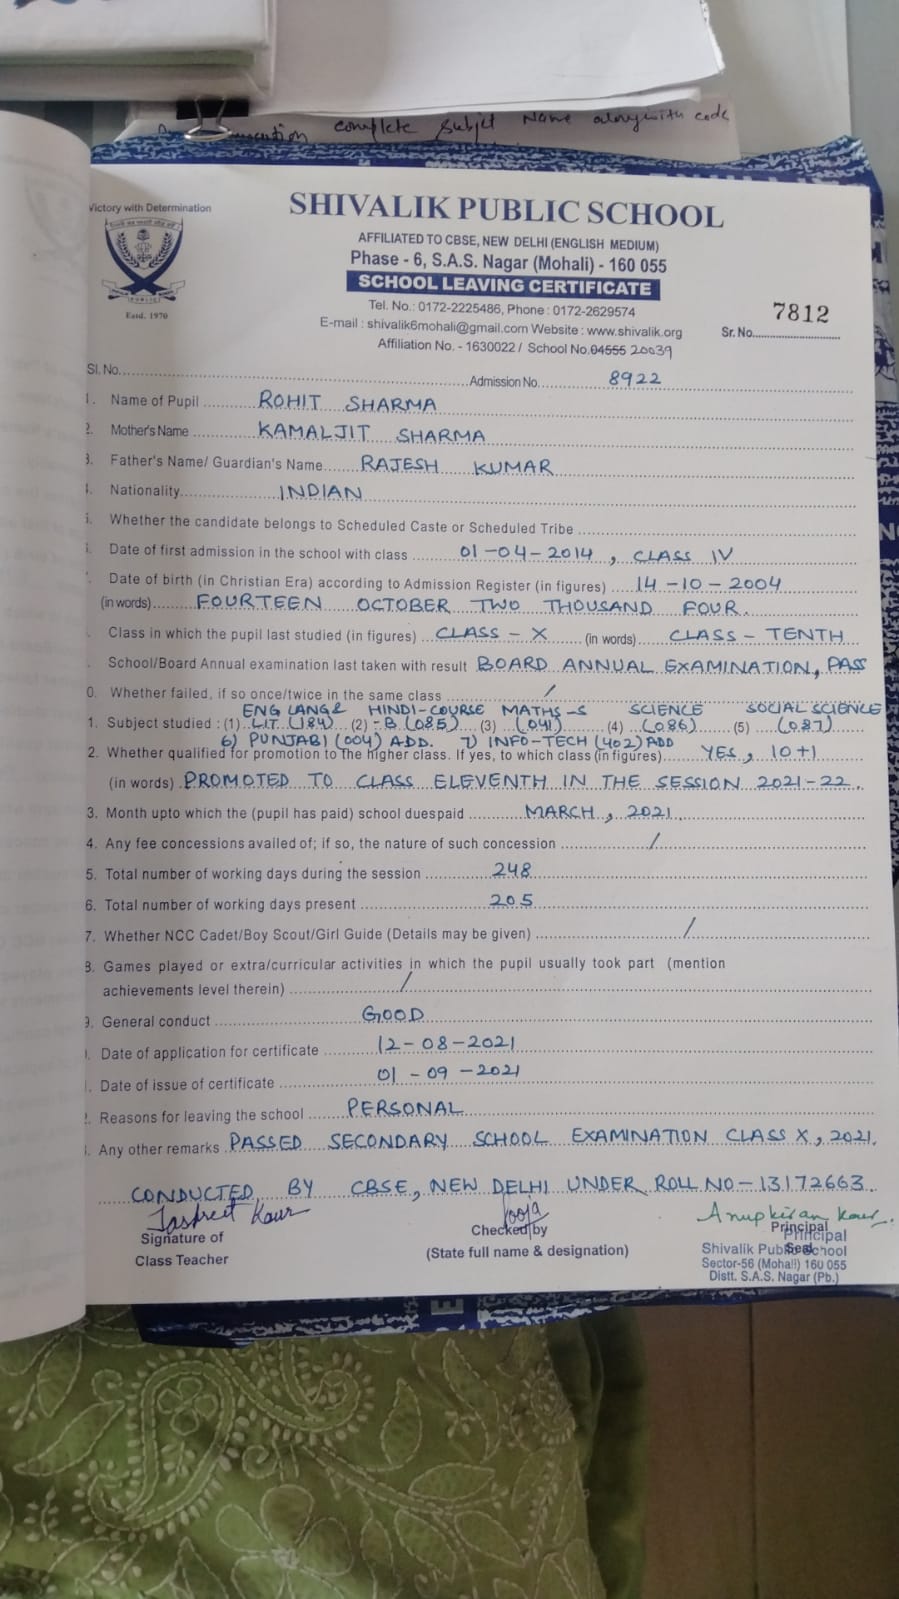 complete Subject Name alongwith code
Victory with Determination
PUBLIC
Estd. 1970
SHIVALIK PUBLIC SCHOOL
AFFILIATED TO CBSE, NEW DELHI (ENGLISH MEDIUM)
Phase - 6, S.A.S. Nagar (Mohali) - 160 055
SCHOOL LEAVING CERTIFICATE
Tel. No.: 0172-2225486, Phone : 0172-2629574
E-mail : shivalik6mohali@gmail.com Website : www.shivalik.org
Affiliation No. - 1630022 / School No. 04555 20039
Sr. No. 7812
Sl. No. Admission No. 8922
1. Name of Pupil ROHIT SHARMA
2. Mother's Name KAMALJIT SHARMA
3. Father's Name/ Guardian's Name RAJESH KUMAR
Nationality INDIAN
Whether the candidate belongs to Scheduled Caste or Scheduled Tribe
Date of first admission in the school with class 01-04-2014, CLASS IV
Date of birth (in Christian Era) according to Admission Register (in figures) 14-10-2004
(in words) FOURTEEN OCTOBER TWO THOUSAND FOUR.
Class in which the pupil last studied (in figures) CLASS-X (in words) CLASS-TENTH
School/Board Annual examination last taken with result BOARD ANNUAL EXAMINATION, PASS
0. Whether failed, if so once/twice in the same class /
ENG LANG& HINDI-COURSE MATHS-S SCIENCE SOCIAL SCIENCE
1. Subject studied : (1) LIT. (184) (2) -B (085) (3) (041) (4) (086) (5) (087)
6) PUNJABI (004) ADD. 7) INFO-TECH (402) ADD
2. Whether qualified for promotion to the higher class. If yes, to which class (in figures) YES, 10+1
(in words) PROMOTED TO CLASS ELEVENTH IN THE SESSION 2021-22.
3. Month upto which the (pupil has paid) school duespaid MARCH, 2021.
4. Any fee concessions availed of; if so, the nature of such concession /
5. Total number of working days during the session 248
6. Total number of working days present 205
7. Whether NCC Cadet/Boy Scout/Girl Guide (Details may be given) /
8. Games played or extra/curricular activities in which the pupil usually took part (mention
achievements level therein) /
9. General conduct GOOD
Date of application for certificate 12-08-2021
Date of issue of certificate 01-09-2021
Reasons for leaving the school PERSONAL
Any other remarks PASSED SECONDARY SCHOOL EXAMINATION CLASS X, 2021.
CONDUCTED BY CBSE, NEW DELHI UNDER ROLL NO-13172663.
Jaspreet Kaur Pooja Anupkiran Kaur.
Signature of Checked by Principal
Class Teacher (State full name & designation) Seal
Principal
Shivalik Public School
Sector-56 (Mohali) 160 055
Distt. S.A.S. Nagar (Pb.)